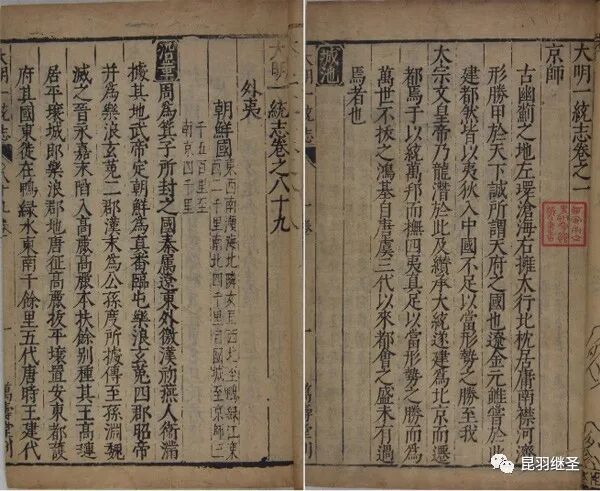 大明一統志卷之一
京師
古幽薊之地左環滄海右擁太行北枕居庸南襟河濟
形勝甲於天下誠所謂天府之國也遼金元雖嘗於此
建都然皆以夷狄入中國不足以當形勢之勝至我
太宗文皇帝乃龍潛於此及纘承大統遂建為北京而遷
都焉于以統萬邦而撫四夷真足以當形勢之勝而為
萬世不拔之鴻基自唐虞三代以來都會之盛未有過
焉者也
城池
大明一統志
大明一統志卷之八十九
外夷
朝鮮國
東西南濱海北隣女直西北至鴨綠江東西
二千里南北四千里自國城至京師三
千五百里至
南京四千里
沿革 周為箕子所封之國秦屬遼東外徼漢初燕人衛滿
據其地武帝定朝鮮為真番臨屯樂浪玄菟四郡昭帝
并為樂浪玄菟二郡漢末為公孫度所據傳至孫淵魏
滅之晉永嘉末陷入高麗高麗本扶餘別種其王高璉
居平壤城即樂浪郡地唐征高麗拔平壤置安東都護
府其國東徙在鴨綠水東南千餘里五代唐時王建代
大明一統志 八十九卷 一 萬壽堂刊
昆羽继圣